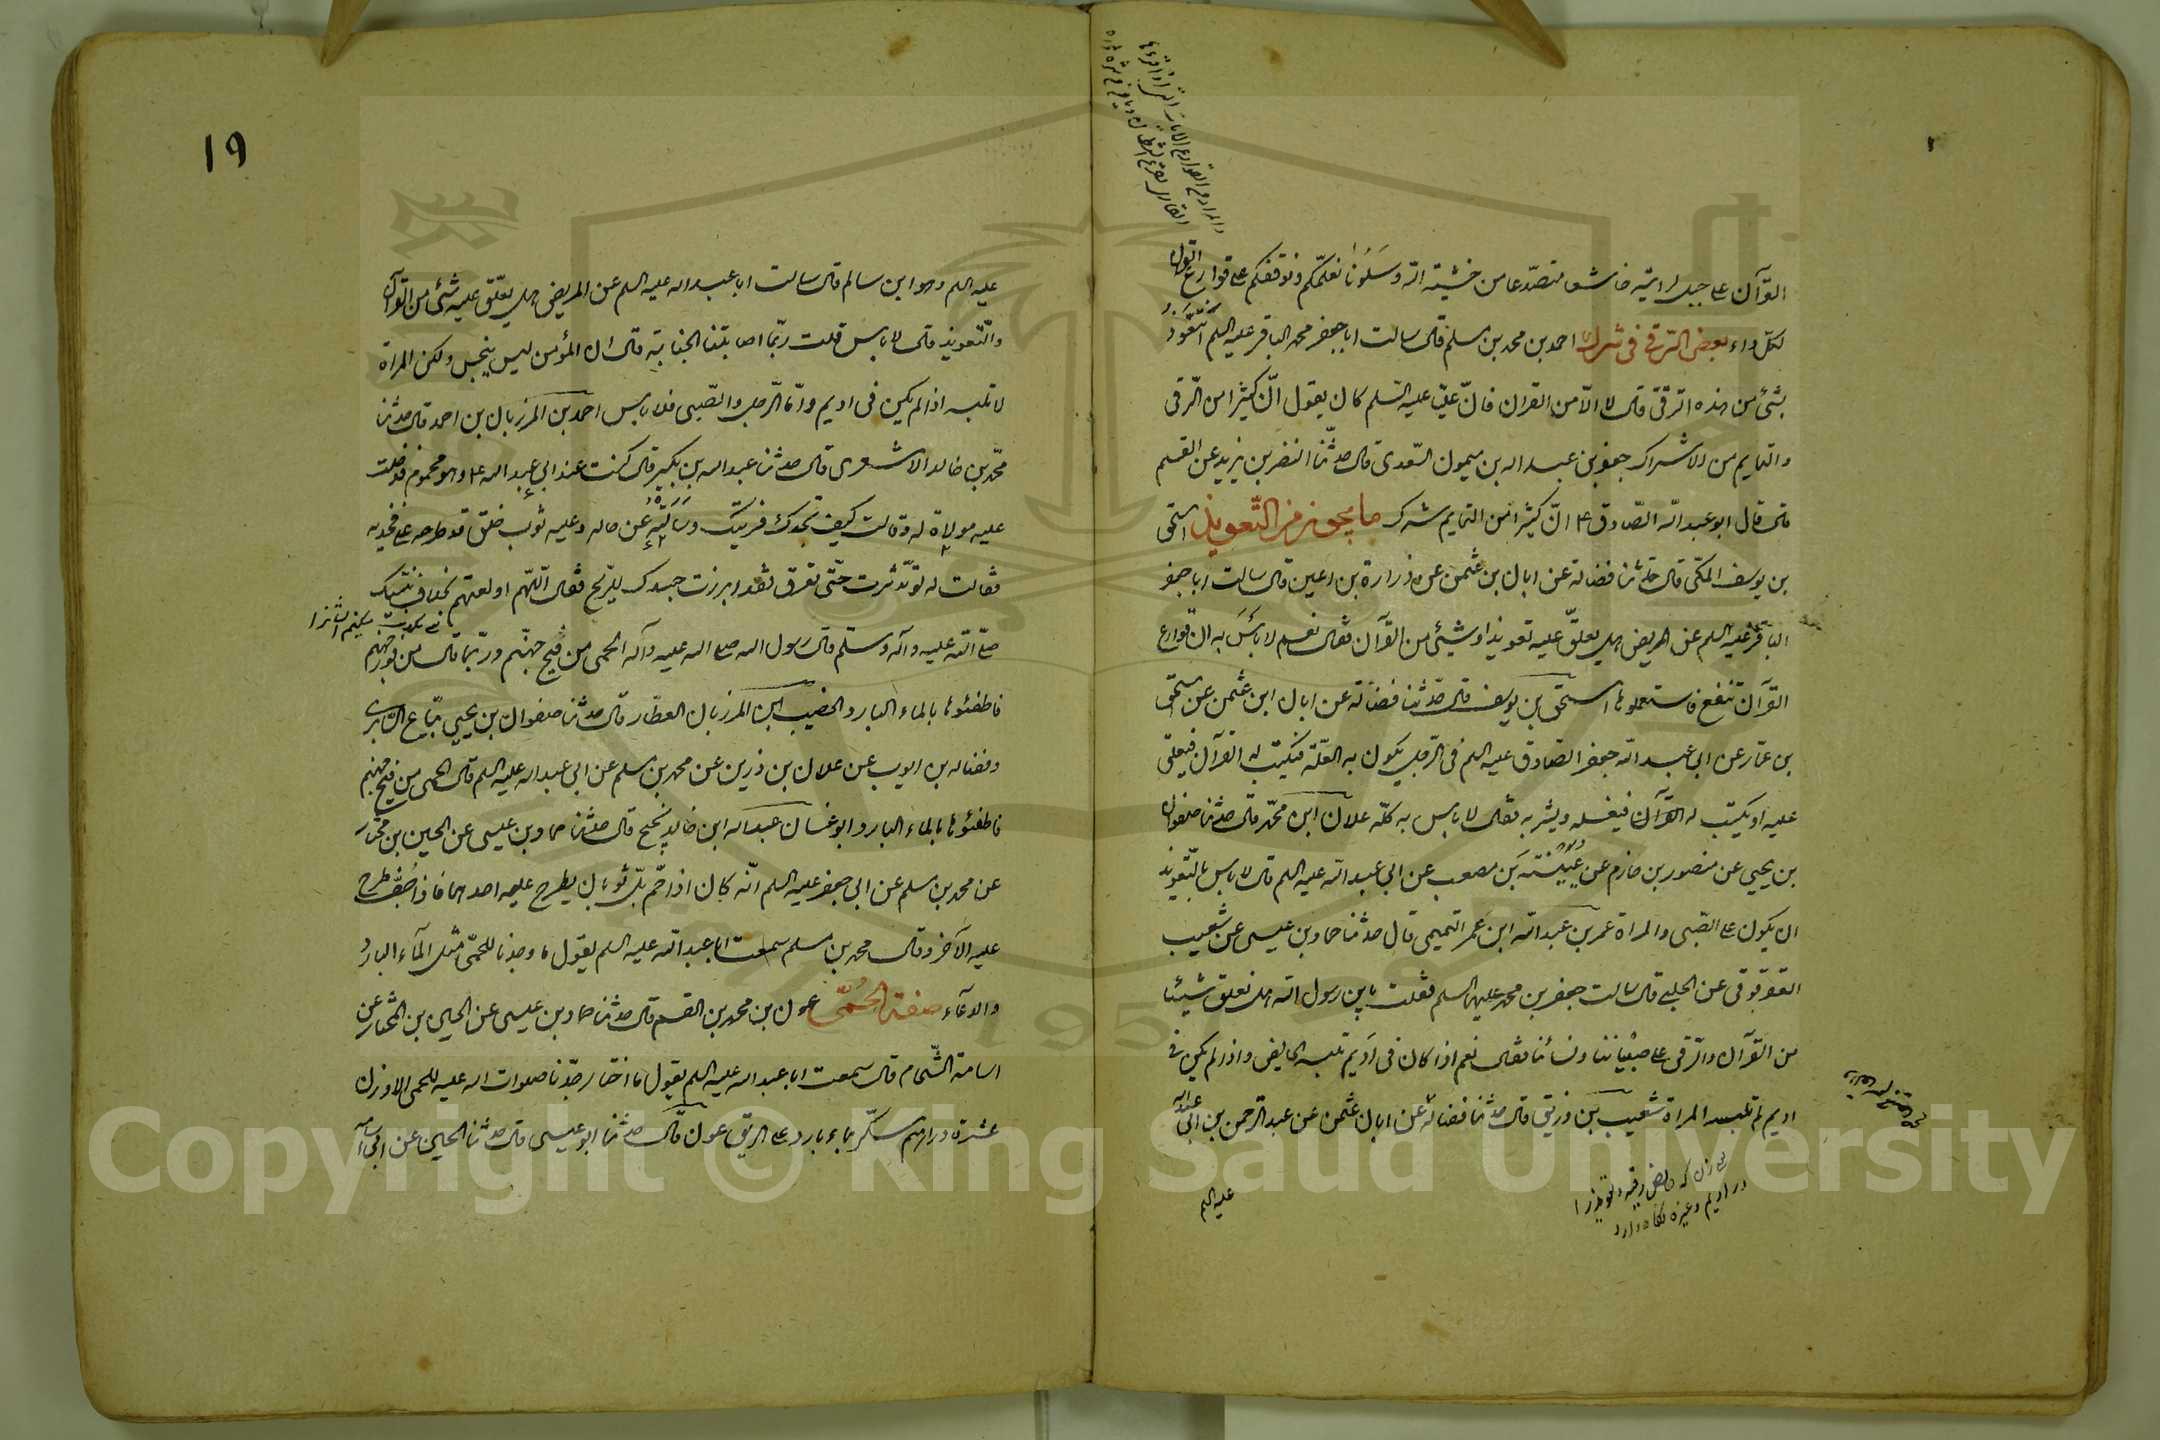 القرآن على جبل لرايته خاشعا متصدعا من خشية الله وسلونا نعلمكم ونوقفكم على قوارع القرآن
لكل داء بعض الرقى فى شرك احمد بن محمد بن مسلم قال سالت ابا جعفر محمد الباقر عليه السلم انتعوذ
بشئ من هذه الرقى قال لا الا من القران فان عليا عليه السلم كان يقول ان كثيرا من الرقى
والتمايم من الاشراك جعفر بن عبد الله بن ميمون السعدى قال حدثنا النضر بن يزيد عن القسم
قال قال ابو عبد الله الصادق ع ان كثيرا من التمايم شرك ما يجوز من التعويذ اسحق
بن يوسف المكى قال حدثنا فضالة عن ابان بن عثمن عن زرارة بن اعين قال سالت ابا جعفر
الباقر عليه السلم عن المريض هل يعلق عليه تعويذ او شيئ من القرآن فقال نعم لا بأس به ان قوارع
القرآن تنفع فاستعملوها اسحق بن يوسف قال حدثنا فضالة عن ابان ابن عثمن عن اسحق
بن عمار عن ابى عبد الله جعفر الصادق عليه السلم فى الرجل يكون به العلة فيكتب له القرآن فيعلق
عليه او يكتب له القرآن فيغسله ويشربه فقال لا باس به كله علان ابن محمد قال حدثنا صفوان
بن يحيى عن منصور بن حازم عن عيينة بن مصعب عن ابى عبد الله عليه السلم قال لا باس بالتعويذ
ان يكون على الصبى والمراة عمر بن عبد الله ابن عمر التميمى قال حدثنا حماد بن عيسى عن شعيب
العقرقوقى عن الحلبى قال سالت جعفر بن محمد عليهما السلم فقلت يابن رسول الله هل نعلق شيئا
من القرآن والرقى على صبياننا ونسائنا فقال نعم اذا كان فى اديم تلبسه الحايض واذا لم يكن فى
اديم لم تلبسه المراة شعيب بن زريق قال حدثنا فضالة عن ابان عثمن عن عبد الرحمن بن ابى عبد الله
عليه السلم
١٩
عليه السلم وهو ابن سالم قال سالت ابا عبد الله عليه السلم عن المريض هل يعلق عليه شئ من القرآن
والتعويذ قال لا باس قلت ربما اصابتنا الجنابة قال ان المؤمن ليس بنجس ولكن المراة
لا تلبسه اذا لم يكن فى اديم واما الرجل والصبى فلا باس احمد بن المرزبان بن احمد قال حدثنا
محمد بن خالد الاشعرى قال حدثنا عبد الله بن بكير قال كنت عند ابي عبد الله ع وهو محموم فدخلت
عليه مولاة له وقالت كيف تجدك فديتك وسالته عن حاله وعليه ثوب خلق قد طرحه على فخذيه
فقالت له لو تدثرت حتى تعرق فقد ابرزت جسدك للريح فقال اللهم اولعتهم بخلاف نبيك
صلى الله عليه وآله وسلم قال رسول الله صلى الله عليه وآله الحمى من فيح جهنم وربما قال من فور جهنم
فاطفئوها بالماء البارد الخضيب ابن المرزبان العطار قال حدثنا صفوان بن يحيى بياع السابرى
وفضاله بن ايوب عن علان بن زرين عن محمد بن مسلم عن ابى عبد الله عليه السلم قال الحمى من فيح جهنم
فاطفئوها بالماء البارد ابو غسان عبد الله ابن خالد نجيح قال حدثنا حماد بن عيسى عن الحسين بن مختار
عن محمد بن مسلم عن ابى جعفر عليه السلم انه كان اذا حم بل ثوبان يطرح عليه احدهما فاذا جف طرح
عليه الآخر وقال محمد بن مسلم سمعت ابا عبد الله عليه السلم يقول ما وجدنا للحمى مثل المآء البارد
والدعآء صفة الحمى عون بن محمد بن القسم قال حدثنا حماد بن عيسى عن الحسين بن المختار عن
اسامة الشحام قال سمعت ابا عبد الله عليه السلم يقول ما اختار جدنا صلوات الله عليه للحمى الا وزن
عشرة دراهم سكر بماء بارد على الريق عون قال حدثنا ابو عيسى قال حدثنا الحسين عن ابى اسامة
Copyright © King Saud University
1957